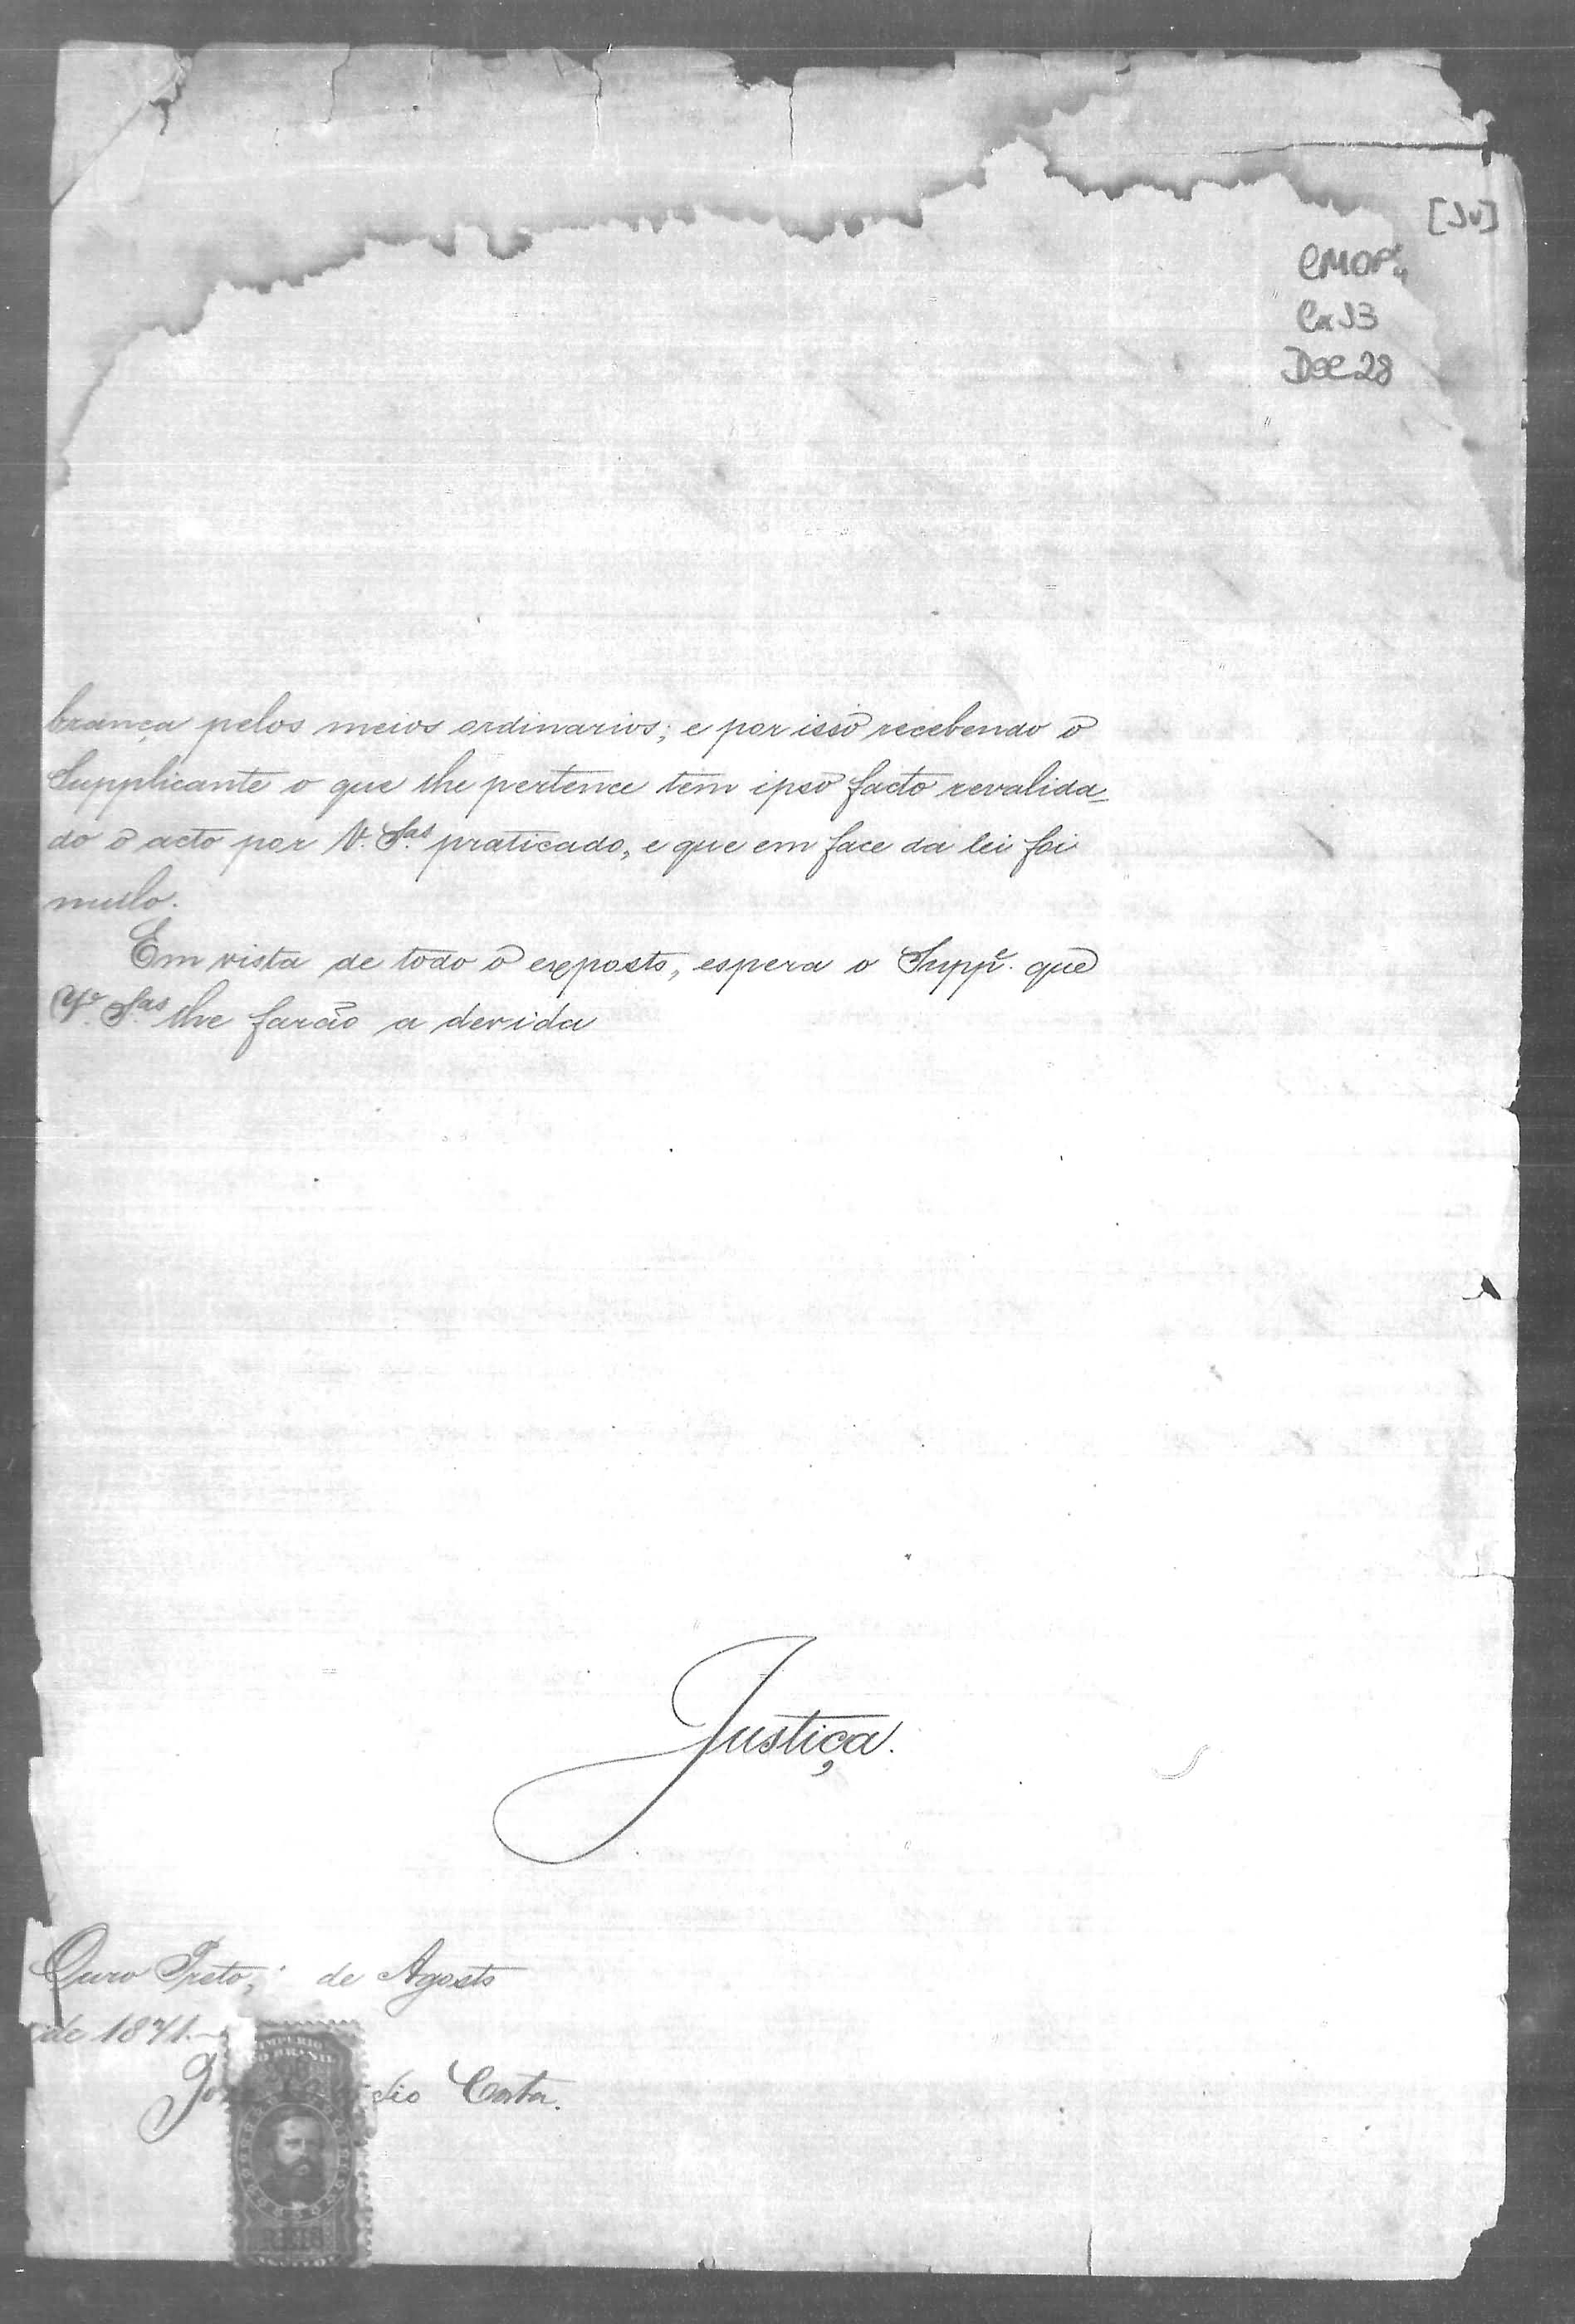 [1v]
CMOP
Cx 13
Doc 28
brança pelos meios ordinarios; e por isso recebendo o
Supplicante o que lhe pertence tem ipso facto revalida=
do o acto por V. S.as praticado, e que em face da lei foi
nullo.
Em vista de todo o exposto, espera o Supp.e que
V. S.as lhe farão a devida
Justiça.
Ouro Preto, de Agosto
de 1871.
IMPERIO
DO BRASIL
dio Costa.